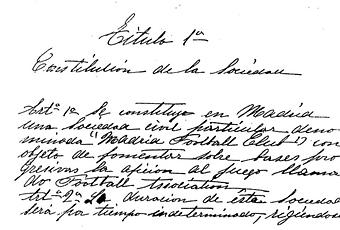 Titulo 1º
Constitución de la Sociedad
Artº 1º Se constituye en Madrid
una Sociedad civil particular deno
minada "Madrid Football Club" con
objeto de fomentar sobre bases pro
gresivas la aficion al juego llama
do Football Association
Artº 2º La duracion de esta Sociedad
será por tiempo indeterminado, rigiendose